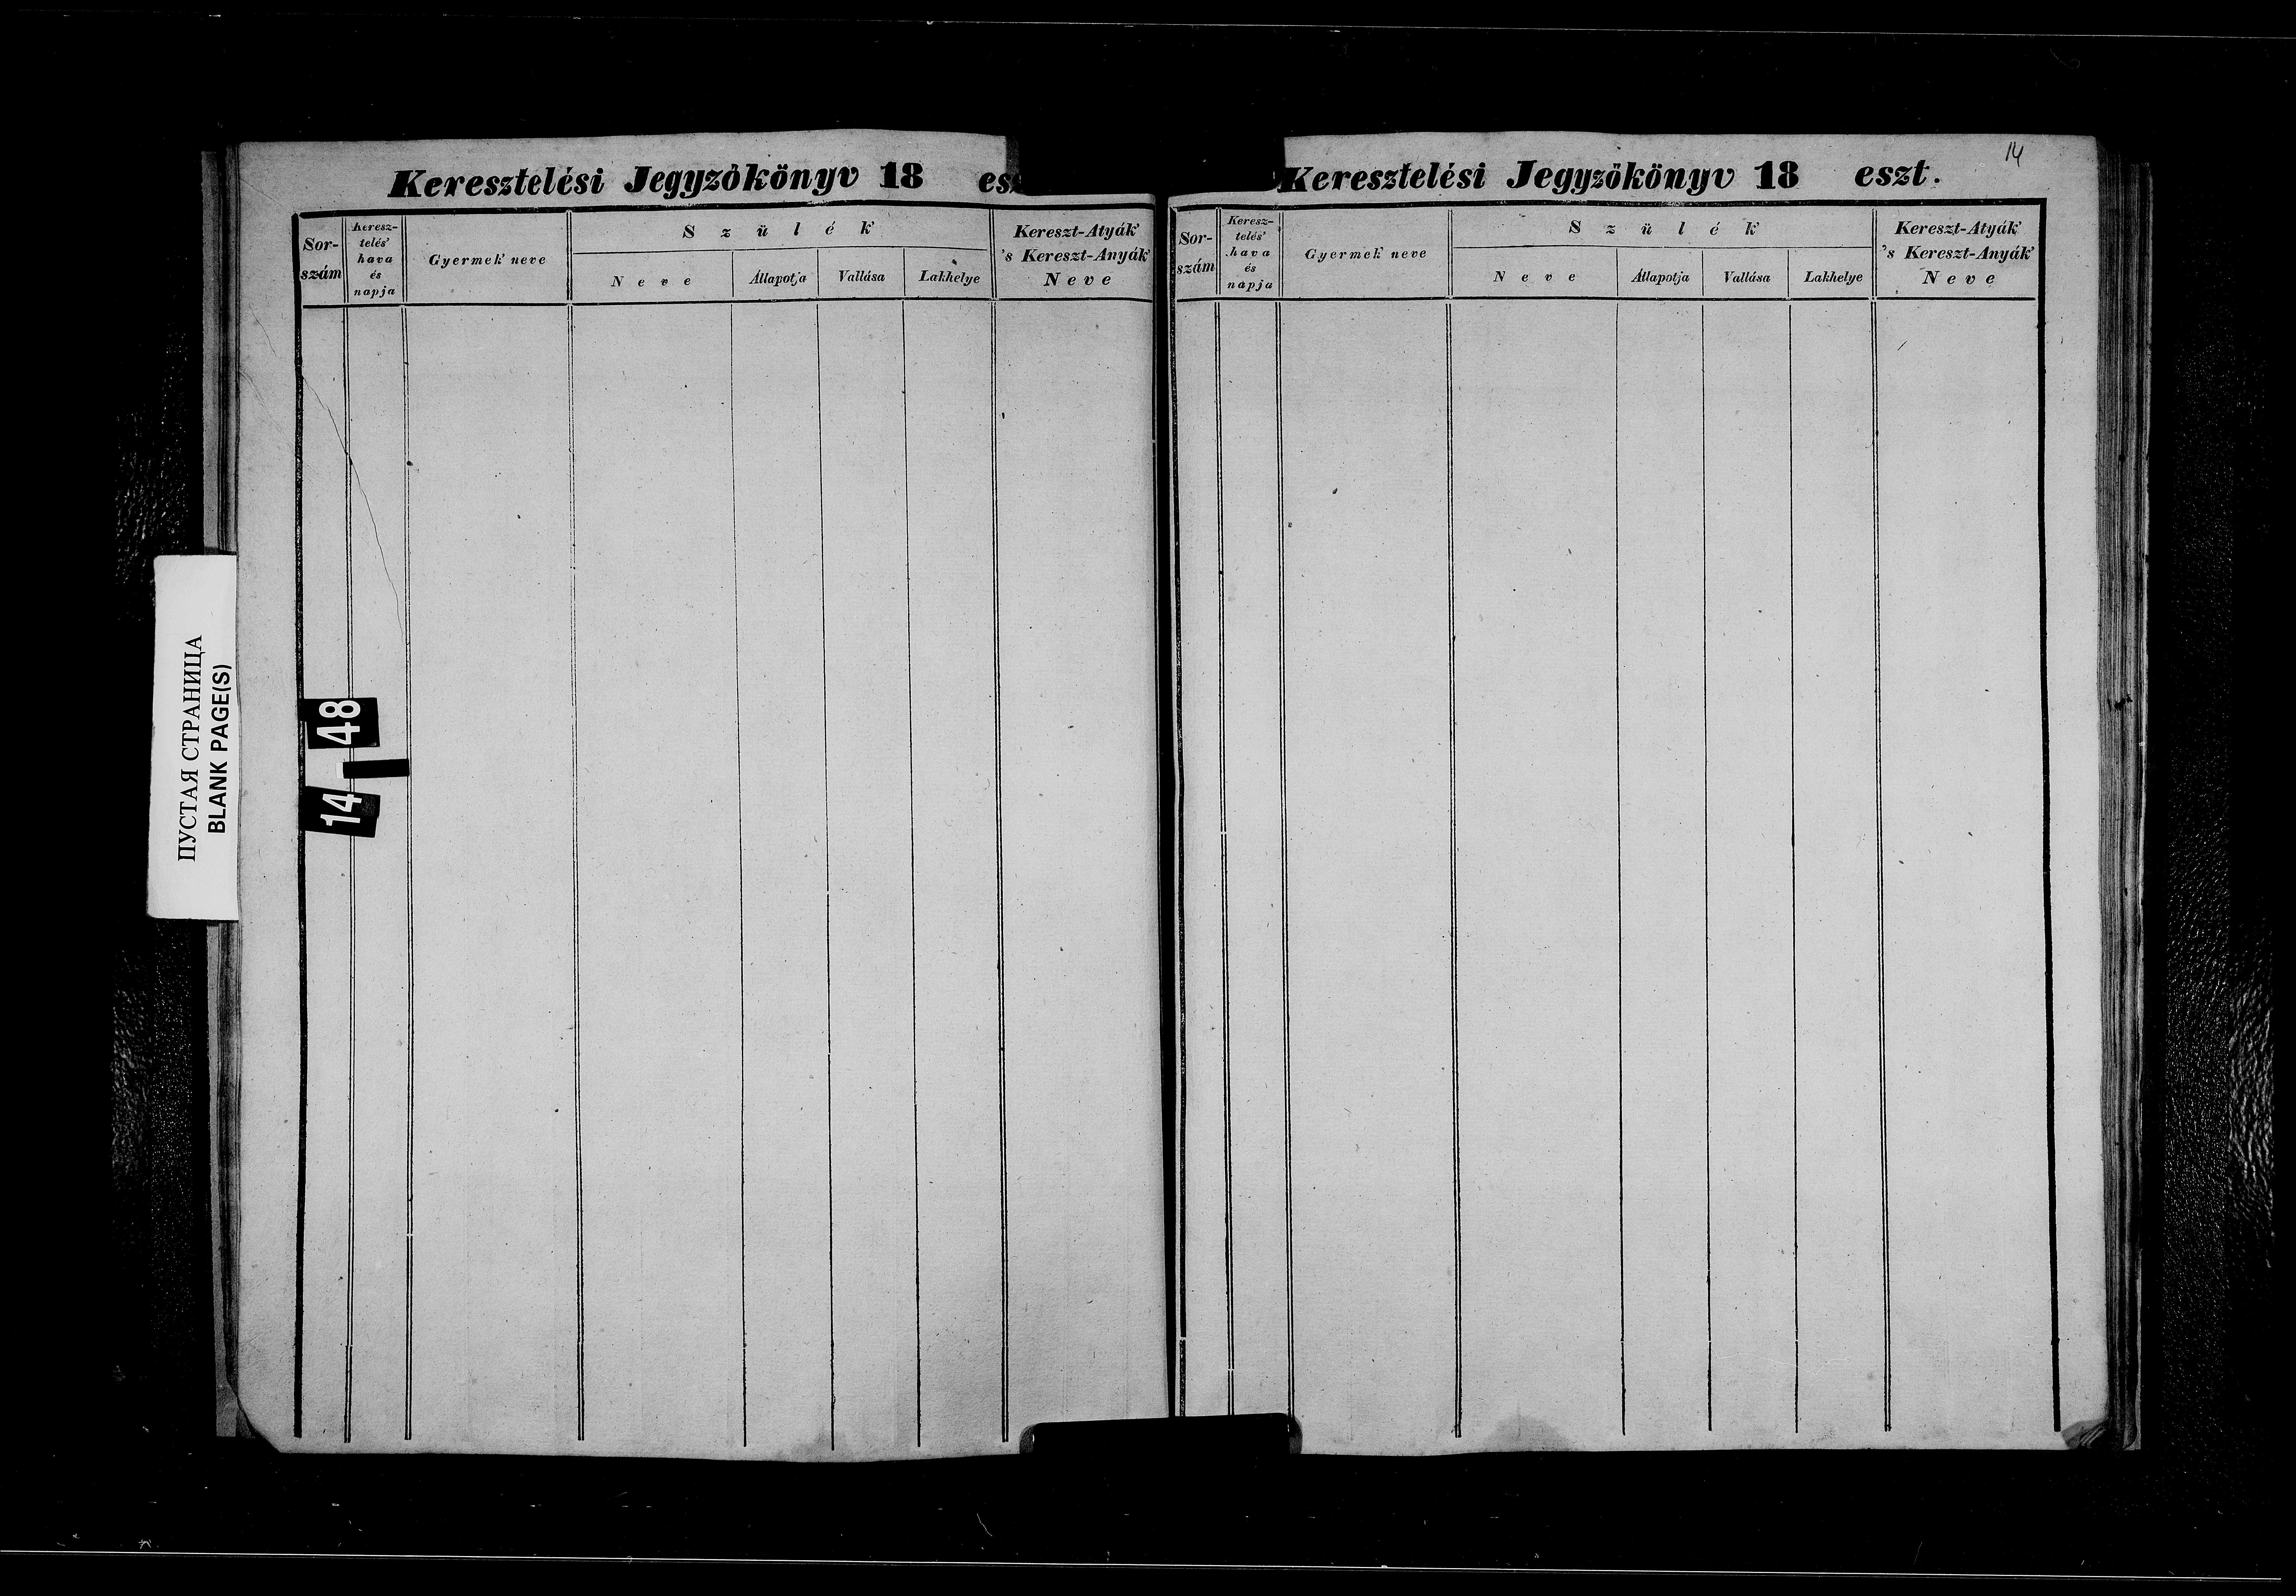 Keresztelési Jegyzőkönyv 18
Sor-
szám
Keresz-
telés'
hava
és
napja
Gyermek' neve
Szülék'
Neve
Állapotja
Vallása
Lakhelye
Kereszt-Atyák'
's Kereszt-Anyák'
Neve
ПУСТАЯ СТРАНИЦА
BLANK PAGE(S)
14 48
14
Keresztelési Jegyzőkönyv 18 eszt.
Sor-
szám
Keresz-
telés'
hava
és
napja
Gyermek' neve
Szülék'
Neve
Állapotja
Vallása
Lakhelye
Kereszt-Atyák'
's Kereszt-Anyák'
Neve